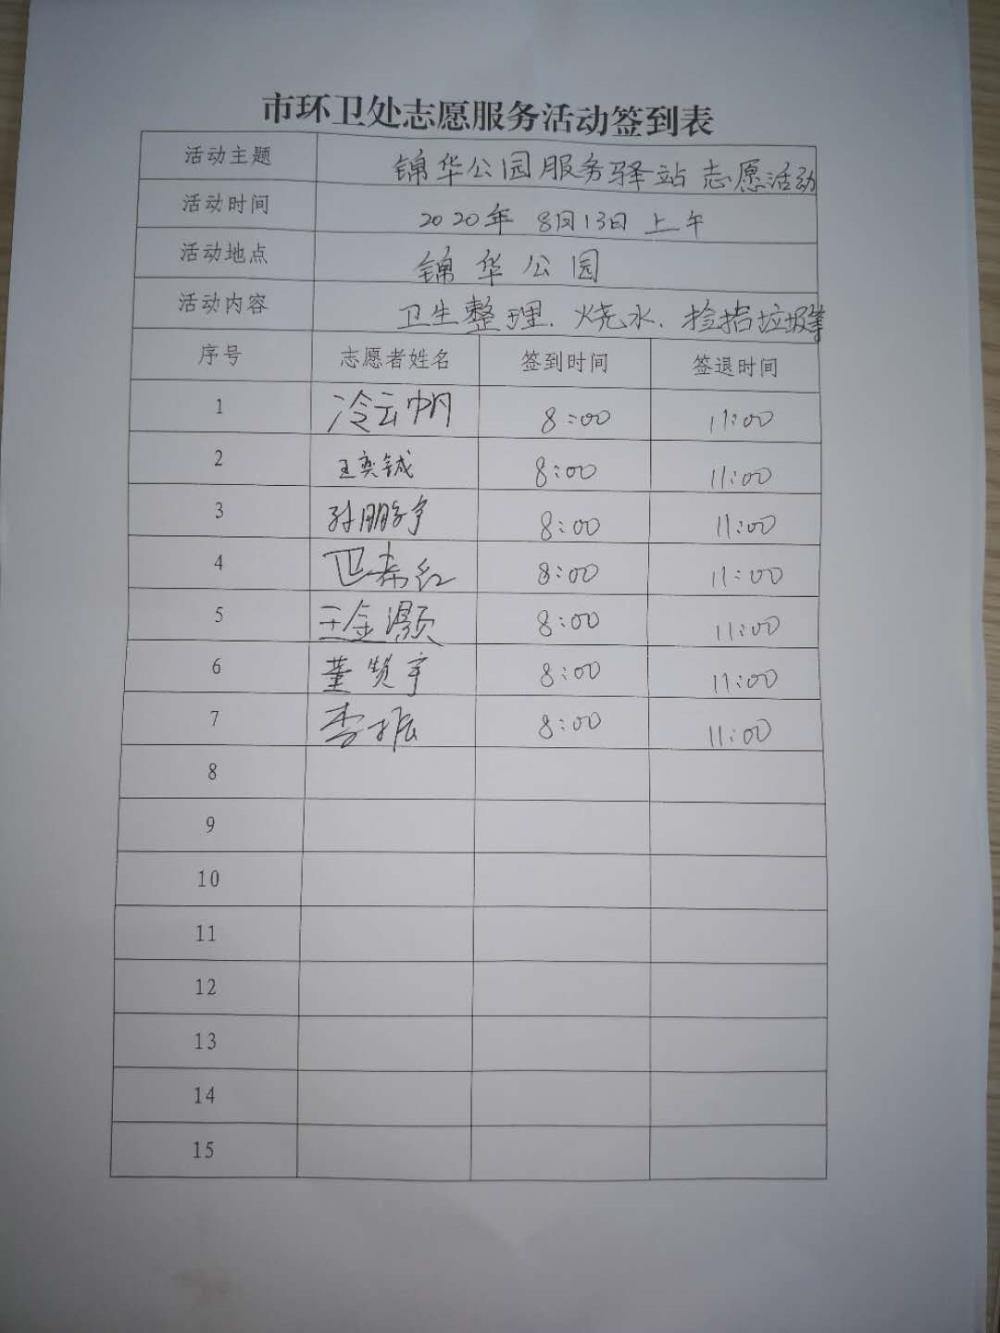 市环卫处志愿服务活动签到表
活动主题 锦华公园服务驿站志愿活动
活动时间 2020年 8月13日上午
活动地点 锦华公园
活动内容 卫生整理、烧水、捡拾垃圾等
序号 志愿者姓名 签到时间 签退时间
1 冷云帆 8:00 11:00
2 王奕铖 8:00 11:00
3 孙鹏宇 8:00 11:00
4 8:00 11:00
5 王金灏 8:00 11:00
6 董贤宇 8:00 11:00
7 李振 8:00 11:00
8
9
10
11
12
13
14
15